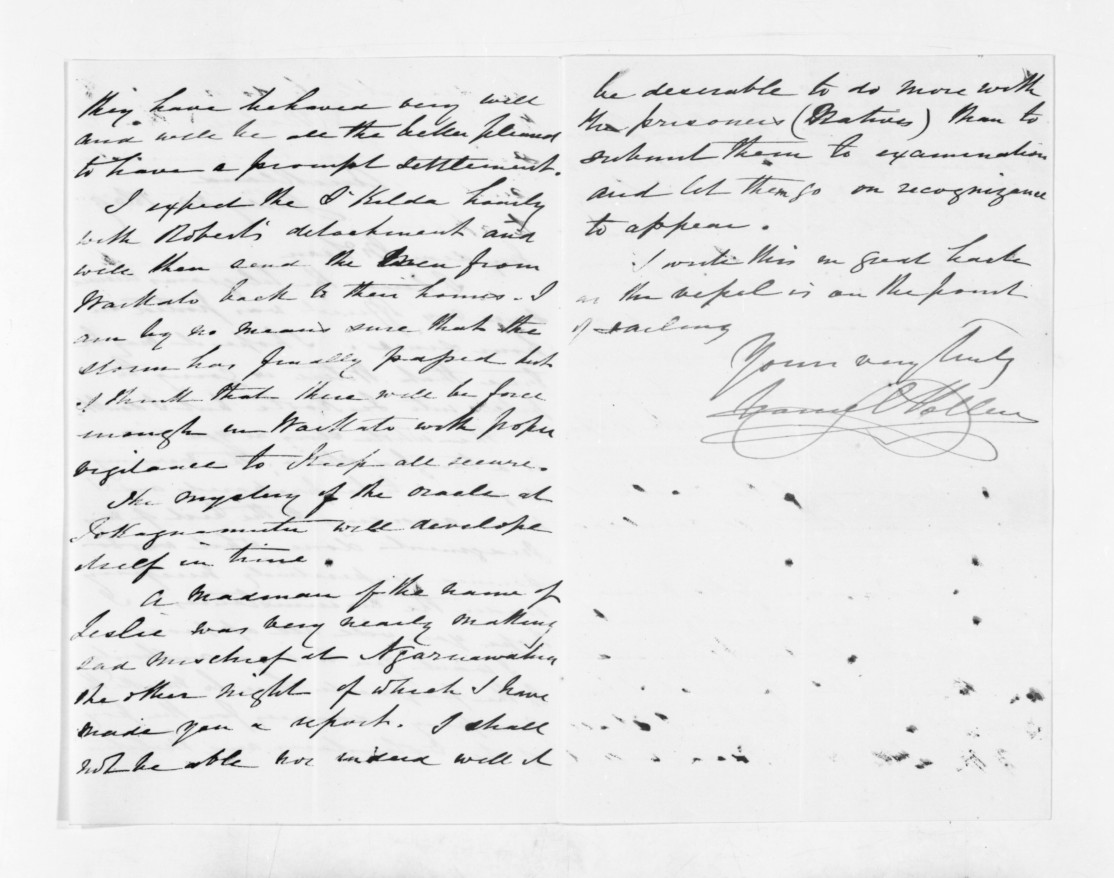 they have behaved very well
and will be all the better pleased
to have a prompt settlement.
I expect the St Kilda hourly
with Robert's detachment and
will then send the Men from
Waikato back to their homes. I
am by no means sure that the
storm has finally passed but
I think that there will be force
enough in Waikato with proper
vigilance to keep all secure.
The mystery of the oracle at
Tokagnamutu will develope
itself in time.
A madman of the name of
Leslie was very nearly making
sad mischief at Ngaruawahia
the other night of which I have
made you a report. I shall
not be able nor indeed will it
be desirable to do more with
the prisoners (Natives) than to
submit them to examination
and let them go on recognizance
to appear.
I write this in great haste
as the vessel is on the point
of sailing
Yours very truly
Daniel Pollen